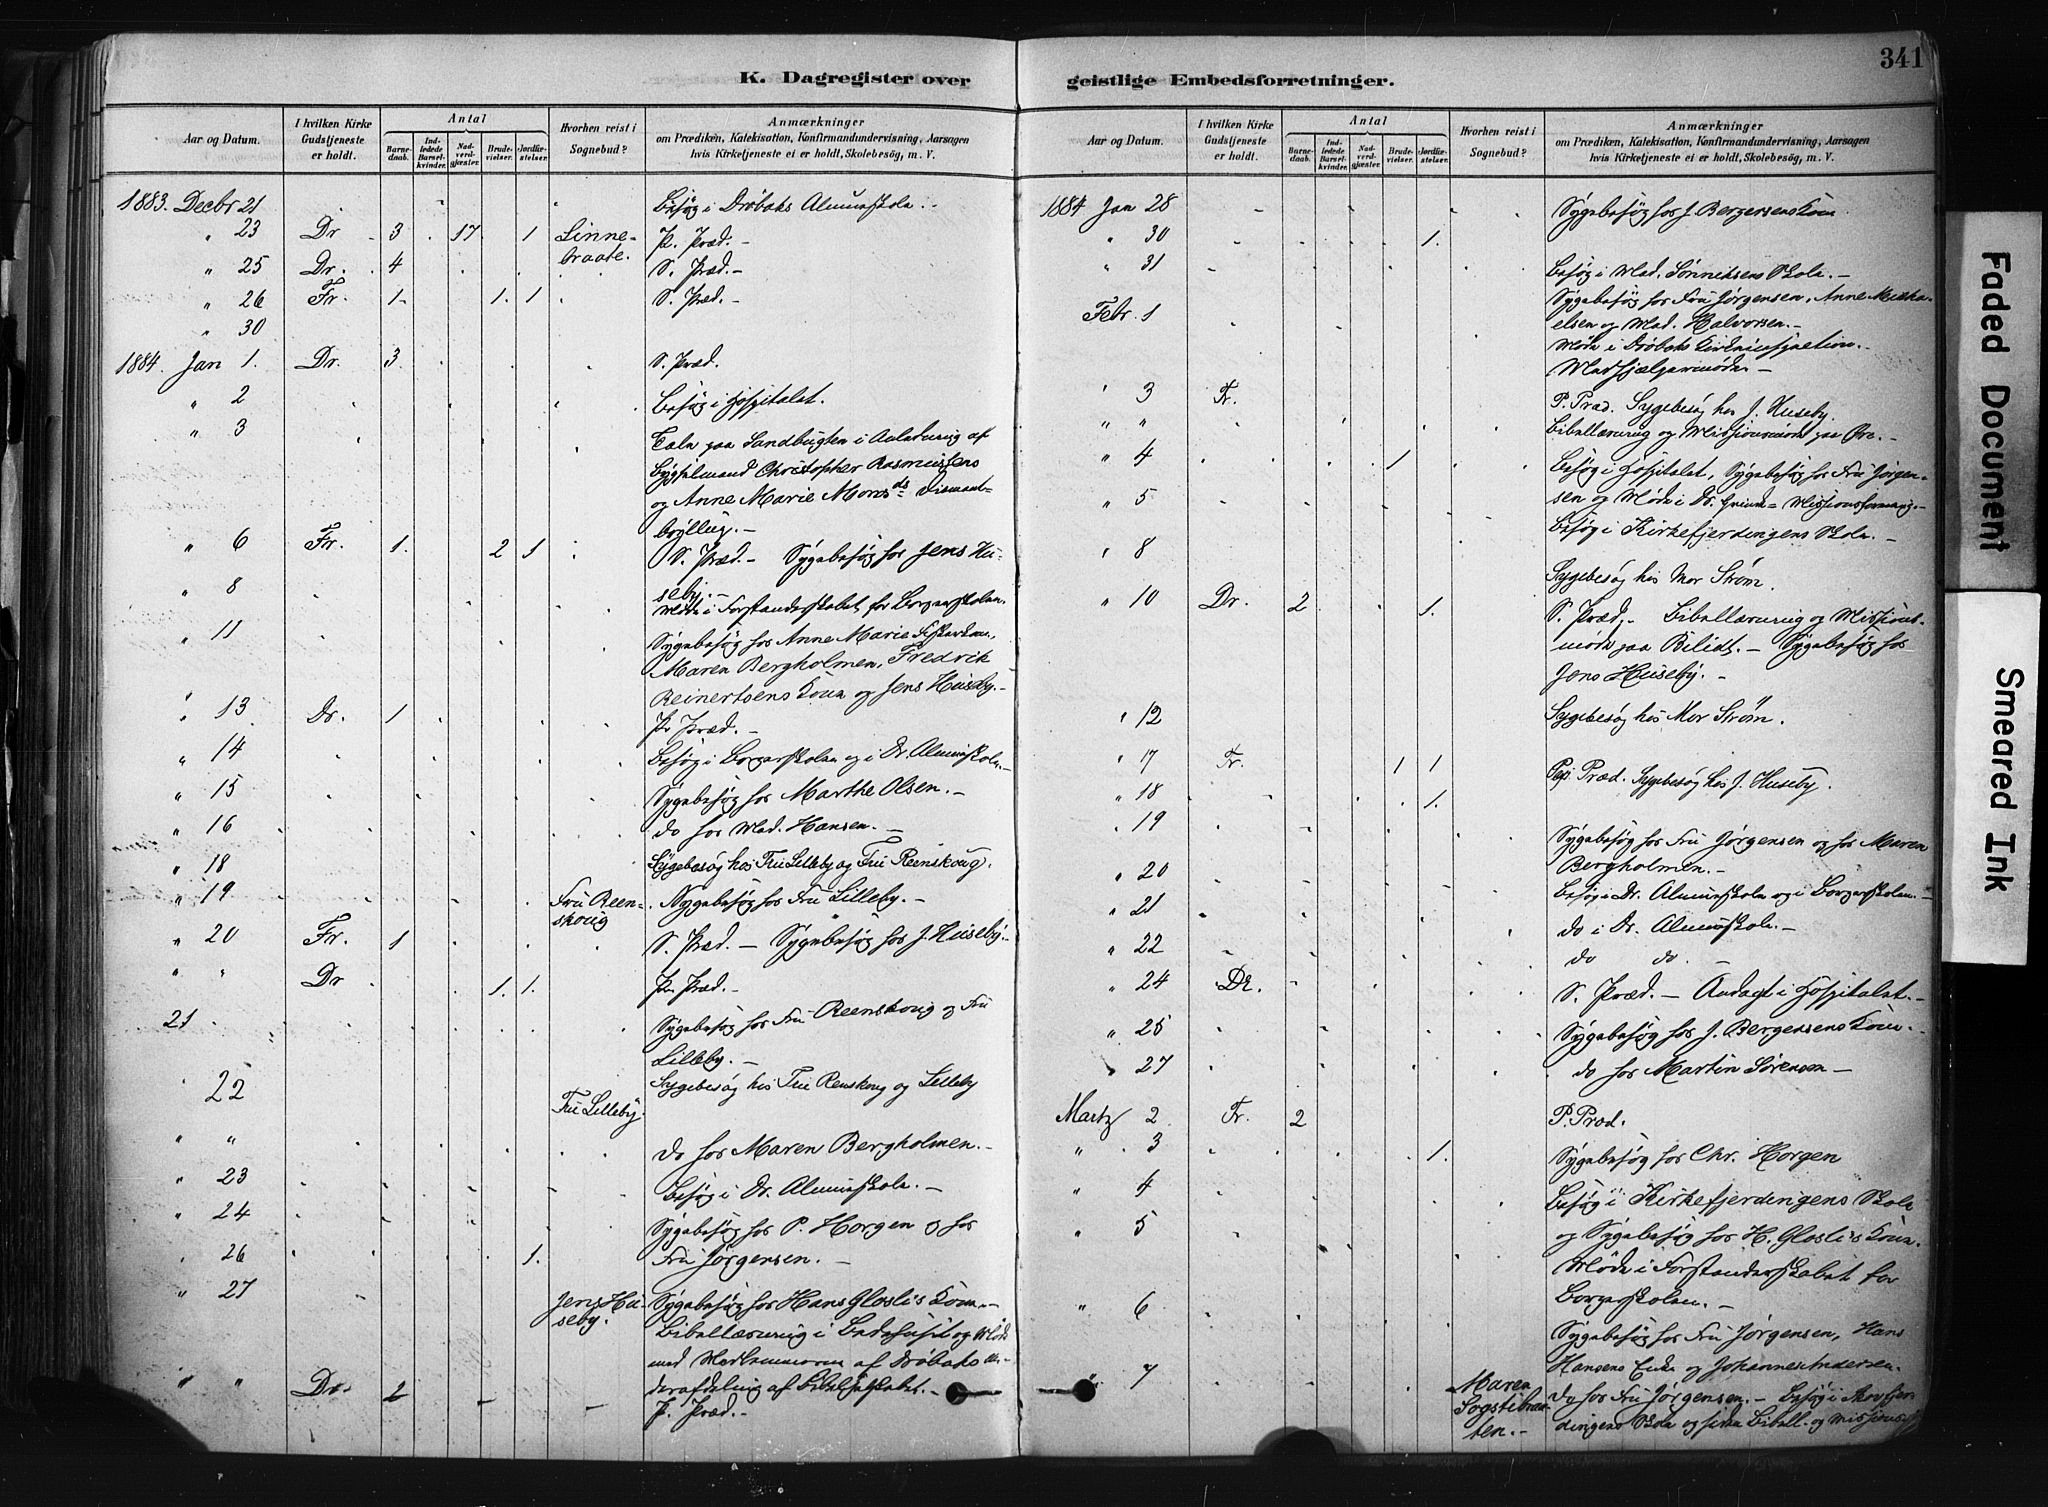 341
K. Dagregister over
geistlige Embedsforretninger.
Aar og Datum.
I hvilken Kirke Gudstjeneste er holdt.
Antal
Barnedaab.
Indledede Barselkvinder.
Nadverdgjester.
Brudevielser.
Jordfæstelser.
Hvorhen reist i Sognebud?
Anmærkninger
om Prædiken, Katekisation, Konfirmandundervisning, Aarsagen
hvis Kirketjeneste ei er holdt, Skolebesøg, m. V.
1883. Decbr 21 Besøg i Drøbaks Almueskole.
" 23 Dr 3 17 1 Linnebraate. P. Præd.
" 25 Dr. 4 S. Præd.
" 26 Fr. 1 1. 1 S. Præd.
" 30
1884. Jan 1. Dr. 3 S. Præd.
" 2 Besøg i Hospitalet.
" 3 Tale paa Sandbugten i Anledning af
Christopher Rasmussens
og Anne Marie Monsds Diamant-
bryllup.
" 6 Fr. 1. 2 1 S. Præd. Sygebesøg hos Jens Hu-
seby.
" 8 Møde i Forstanderskabet for Borgerskolen.
" 11 Sygebesøg hos Anne Marie
Maren Bergholmen, Fredrik
Reinertsens Kone og Jens Huseby.
" 13 Dr. 1 Præd.
" 14 Besøg i Borgerskolen og i Dr. Almueskole.
" 15 Sygebesøg hos Marthe Olsen.
" 16 do hos Mad. Hansen.
" 18 Sygebesøg hos Fru Lilleby og Fru Reenskoug.
" 19 Fru Reenskoug Sygebesøg hos Fru Lilleby.
" 20 Fr. 1 S. Præd. Sygebesøg hos J. Huseby.
" " Dr 1. 1. Præd.
21 Sygebesøg hos Fru Reenskoug og Fru
Lilleby.
22 Fru Lilleby. Sygebesøg hos Fru Renskoug og Lilleby
" " do hos Maren Bergholmen.
" 23 Besøg i Dr. Almueskole.
" 24 Sygebesøg hos P. Horgen og hos
" 26 1. Fru Jørgensen.
" 27 Jens Huseby. Sygebesøg hos Hans Gloslis Kone.
Bibellæsning i Bedehuset og Møde
med Medlemmerne af Drøbaks Un-
derafdeling af Bibelselskabet.
" " Dr. P. Præd.
Aar og Datum.
I hvilken Kirke Gudstjeneste er holdt.
Antal
Barnedaab.
Indledede Barselkvinder.
Nadverdgjester.
Brudevielser.
Jordfæstelser.
Hvorhen reist i Sognebud?
Anmærkninger
om Prædiken, Katekisation, Konfirmandundervisning, Aarsagen
hvis Kirketjeneste ei er holdt, Skolebesøg, m. V.
1884 Jan 28 Sygebesøg hos J. Bergersens Kone.
" 30 1.
" 31 Besøg i Mad. Sønniksens Skole.
Sygebesøg hos Fru Jørgensen, Anne Micha-
Febr. 1 elsen og Mad. Halvorsen.
Møde i Drøbaks
Medhjælpermøde
" 3 Fr. P. Præd. Sygebesøg hos J. Huseby.
" " Bibellæsning og Missionsmøde paa Øre.
" 4 1 Besøg i Hospitalet, Sygebesøg hos Fru Jørgen-
" 5 sen og Møde i Dr. Missionsforening.
Besøg i Kirkefjerdingens Skole.
" 8 Sygebesøg hos Mor Strøm.
" 10 Dr. 2 1. S. Præd. Bibellæsning og Missions-
møde paa Bilidt. Sygebesøg hos
Jens Huseby.
" 12 Sygebesøg hos Mor Strøm.
" 17 Fr. 1 1 Præd. Sygebesøg hos J. Huseby.
" 18 1.
" 19 Sygebesøg hos Fru Jørgensen og hos Maren
Bergholmen.
" 20 Besøg i Dr. Almueskole og i Borgerskolen.
" 21 do i Dr. Almueskole.
" 22 do do.
" 24 Dr. S. Præd. Andagt i Hospitalet.
" 25 Sygebesøg hos J. Bergersens Kone.
" 27 do hos Martin Sørensen
Martz 2 Fr. 2 P. Præd.
" 3 1. Sygebesøg hos Chr. Horgen
" 4 Besøg i Kirkefjerdingens Skole
" 5 og Sygebesøg hos H. Gloslis Kone.
Møde i Forstanderskabet for
Borgerskolen.
" 6 Sygebesøg hos Fru Jørgensen, Hans
Hansens Enke og Johannes Andersen.
" 7 Maren Sogstibraaten. do hos Fru Jørgensen. Besøg i Skovfjer-
dingens Skole og
Faded Document
Smeared Ink